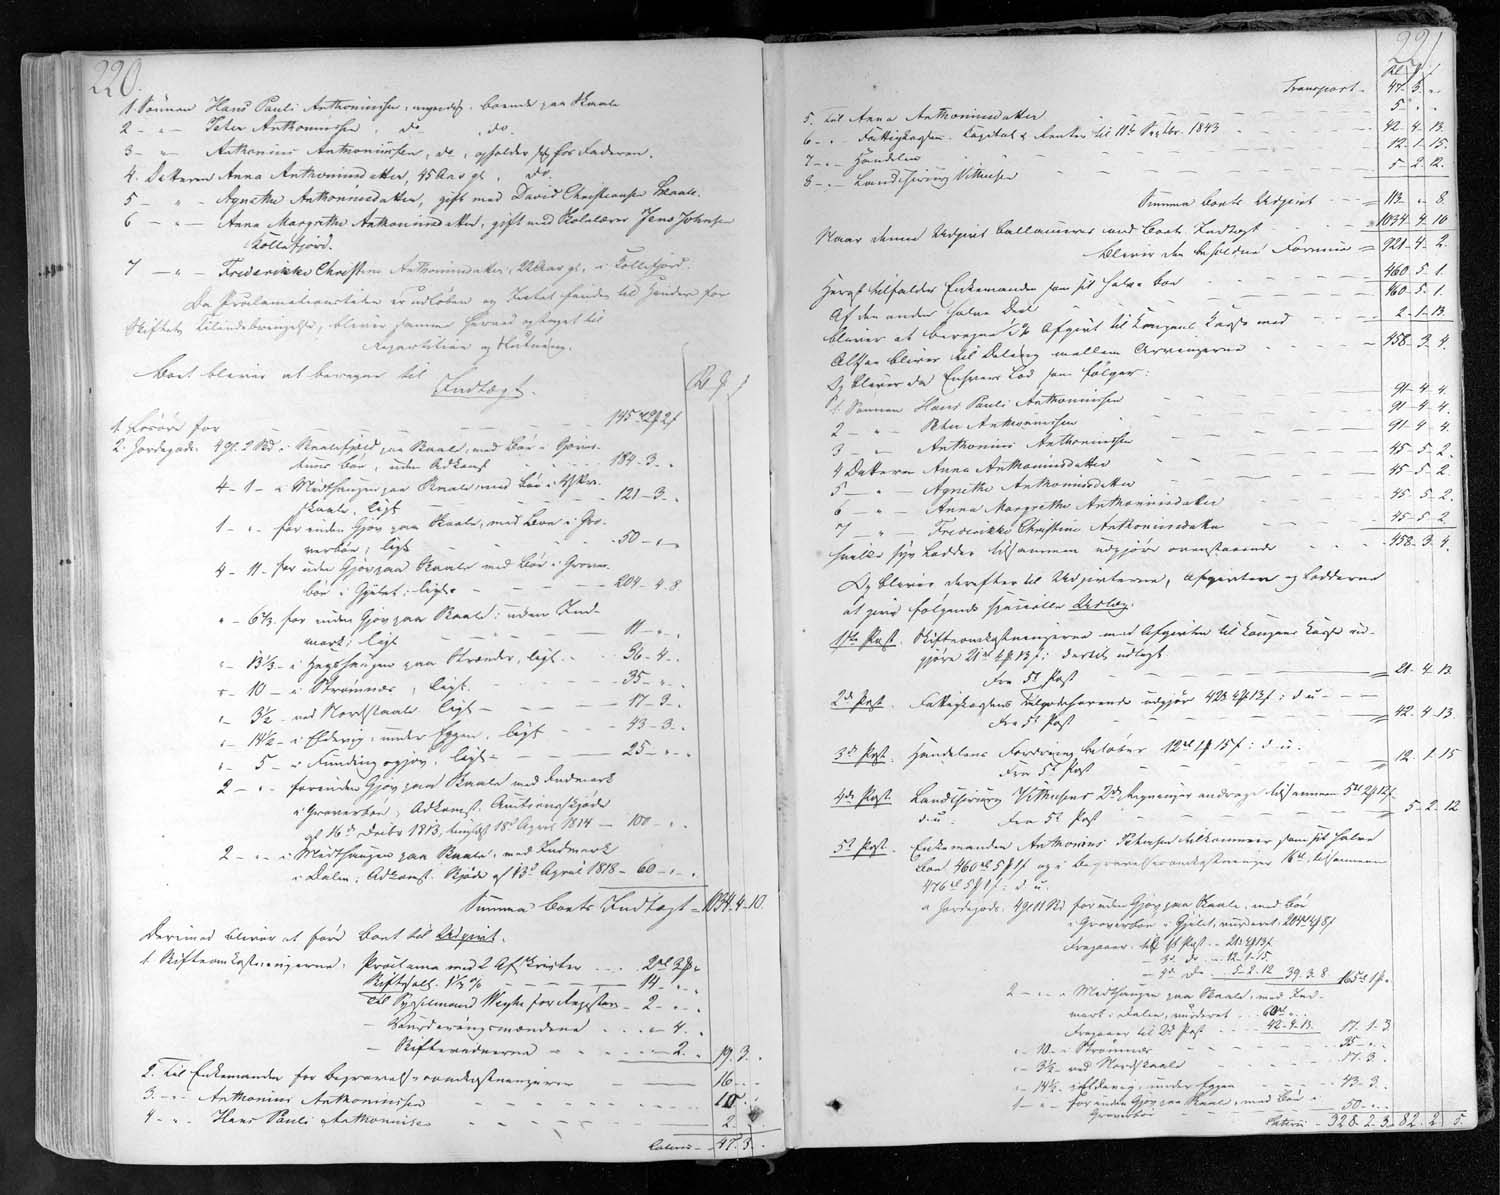 220.
1. Sønnen Hans Pauli Anthoniussen, myndig, boende paa Skaale
2 - " - Peter Anthoniussen, do, do.
3 - " - Anthonius Anthoniussen, do, opholder sig hos Faderen.
4. Datteren Anna Anthoniusdatter, 45 Aar gl., do.
5 - " - Agnethe Anthoniusdatter, gift med David Christiansen Skaale.
6 - " - Anna Margrethe Anthoniusdatter, gift med Skolelærer Jens Johnsen
Kollefjord.
7 - " - Frederikke Christine Anthoniusdatter, 22 Aar gl., i Kollefjord.
Da Proclamationstiden er udløben og Intet findes til Hinder for
Skiftets Tilendebringelse, bliver samme herved optaget til
Repartition og Slutning.
Boet bliver at beregne til
Indtægt.
1. Løsøre for 145 rd 2 ß 2 f
2. Jordegods 4 gl. 2 Sk i paa Skaale, med Bø i
bøe, uden Adkomst 184 - 3 - "
4 - 1 - " Midthaugen paa Skaale, med Bø i
Skaale, ligt 121 - 3 - "
1 - " - for inden Gjov paa Skaale, med Bøe i Gro-
verbøe, ligt 50 - " - "
4 - 11 - for uden Gjov paa Skaale med Bø i Grover-
bøe i Gjilet, ligt 204 - 4 - 8
" - 6 2/3 for inden Gjov paa Skaale, uden Ind-
mark, ligt 11 - " - "
" - 13 1/3 - i Hagshaugen paa Strænder, ligt 36 - 4 - "
" - 10 - i Strømnæs, ligt 35 - " - "
" - 3 1/2 - ved Nordskaale ligt 17 - 3 - "
" - 14 1/2 - i Eldevig, under Eggen, ligt 43 - 3 - "
" - 5 - i Funding ligt 25 - " - "
2 - " - for inden Gjov paa Skaale med Indmark
i Groverbøe, Adkomst, Auctionsskjøde
af 16de Decbr 1813, tinglæst 18de April 1814 - 100 - " - "
2 - " - i Midthaugen paa Skaale, med Indmark
i Dalen, Adkomst, Skjøde af 13de April 1818 - 60 - " - "
Summa Boets Indtægt = 1034. 4. 10.
Derimod bliver at føre Boet til Udgivt.
1. Skifteomkostningerne, Proclama med 2 Afskrifter 2 rd 3 ß "
Skiftesall. 1 1/2 % 14 - " - "
Til Sysselmand Weyhe for Registr. 2 - " - "
- Vurderingsmændene " - 4 - "
- Skiftevidnerne " - 2 - " 19. 3. "
2. Til Enkemanden for Begravelsesomkostningerne 16 - "
3. - " - Anthonius Anthoniussen 10 " "
4 - " - Hans Pauli Anthoniussen 2 "
Lateris - 47. 3. "
221
Rd ß f
Transport - 47 - 3 - "
5. Til Anna Anthoniusdatter 5 " "
6 - " - Fattigkassen, Capital & Renter til 11te Septbr. 1843 42 - 4 - 13.
7 - " - Handelen 12 - 1 - 15.
8 - " - Landchirurg Vithusen 5 - 2 - 12.
Summa Boets Udgivt = 113 " 8
Naar denne Udgivt balanceres med Boets Indtægt 1034. 4. 10
bliver den beholdne Formue = 921 - 4 - 2.
Heraf tilfalder Enkemanden som sit halve Boe 460 - 5 - 1.
Af den anden halve Deel 460 - 5 - 1.
bliver at beregne 1/2 % Afgivt til Kongens Kasse med 2 - 1 - 13.
Altsaa bliver til Deling mellem Arvingerne 458 - 3 - 4.
Og bliver da Enhvers Lod som følger:
1. Sønnen Hans Pauli Anthoniussen 91 - 4 - 4.
2 " Peter Anthoniussen 91 - 4 - 4.
3 - " - Anthonius Anthoniussen 91 - 4 - 4.
4 Datteren Anna Anthoniusdatter 45 - 5 - 2.
5 - " - Agnethe Anthoniusdatter 45 - 5 - 2.
6 - " - Anna Margrethe Anthoniusdatter 45 - 5 - 2.
7 - " - Frederikke Christine Anthoniusdatter 45 - 5 - 2.
hvilke syv Lodder tilsammen udgjøre ovenstaaende 458 - 3 - 4.
Og bliver derefter til Udgivterne, Afgivten og Lodderne
at give følgende specielle Udlæg.
1ste Post. Skifteomkostningerne med Afgivten til Kongens Kasse ud-
gjøre 21 rd 4 ß 13 f: dertil udlagt
Fra 5te Post = 21 - 4 - 13.
2den Post. Fattigkassens Tilgodehavende udgjør 42 rd 4 ß 13 f: d. u.
Fra 5te Post = 42 - 4 - 13.
3die Post. Handelens Fordring beløber 12 rd 1 ß 15 f: d. u.
Fra 5te Post = 12. 1. 15
4de Post. Landchirurg Vithusens 2de Regninger andrage tilsammen 5 rd 2 ß 12 f
d. u. Fra 5te Post = 5 - 2. 12
5te Post. Enkemanden Anthonius Petersen tilkommer som sit halve
Boe 460 rd 5 ß 1 f og i Begravelsesomkostninger 16 rd, tilsammen
476 rd 5 ß 1 f: d. u.
a Jordegods: 4 gl 11 Sk for uden Gjov paa Skaale, med Bø
i Groverbøe i Gjilet, vurderet 204 rd 4 ß 8 f
Fragaaer: til 1ste Post 21 rd 4 ß 13 f
- 3die do. 12. 1. 15.
- 4de do 5. 2. 12 39. 3. 8 165 rd 1 ß "
2 - " - i Midthaugen paa Skaale, med Ind-
mark i Dalen, vurderet 60 rd " "
Fragaaer til 2den Post 42 - 4 - 13. 17. 1. 3
" - 10 - i Strømnæs 35 - " "
" - 3 1/2 - ved Nordskaale 17. 3. "
" - 14 1/2 - i Eldevig, under Eggen 43 - 3 "
1 - " - for inden Gjov paa Skaale, med Bø i
Groverbøe 50 - " "
Lateris - 328. 2. 3. 82. 2. 5.